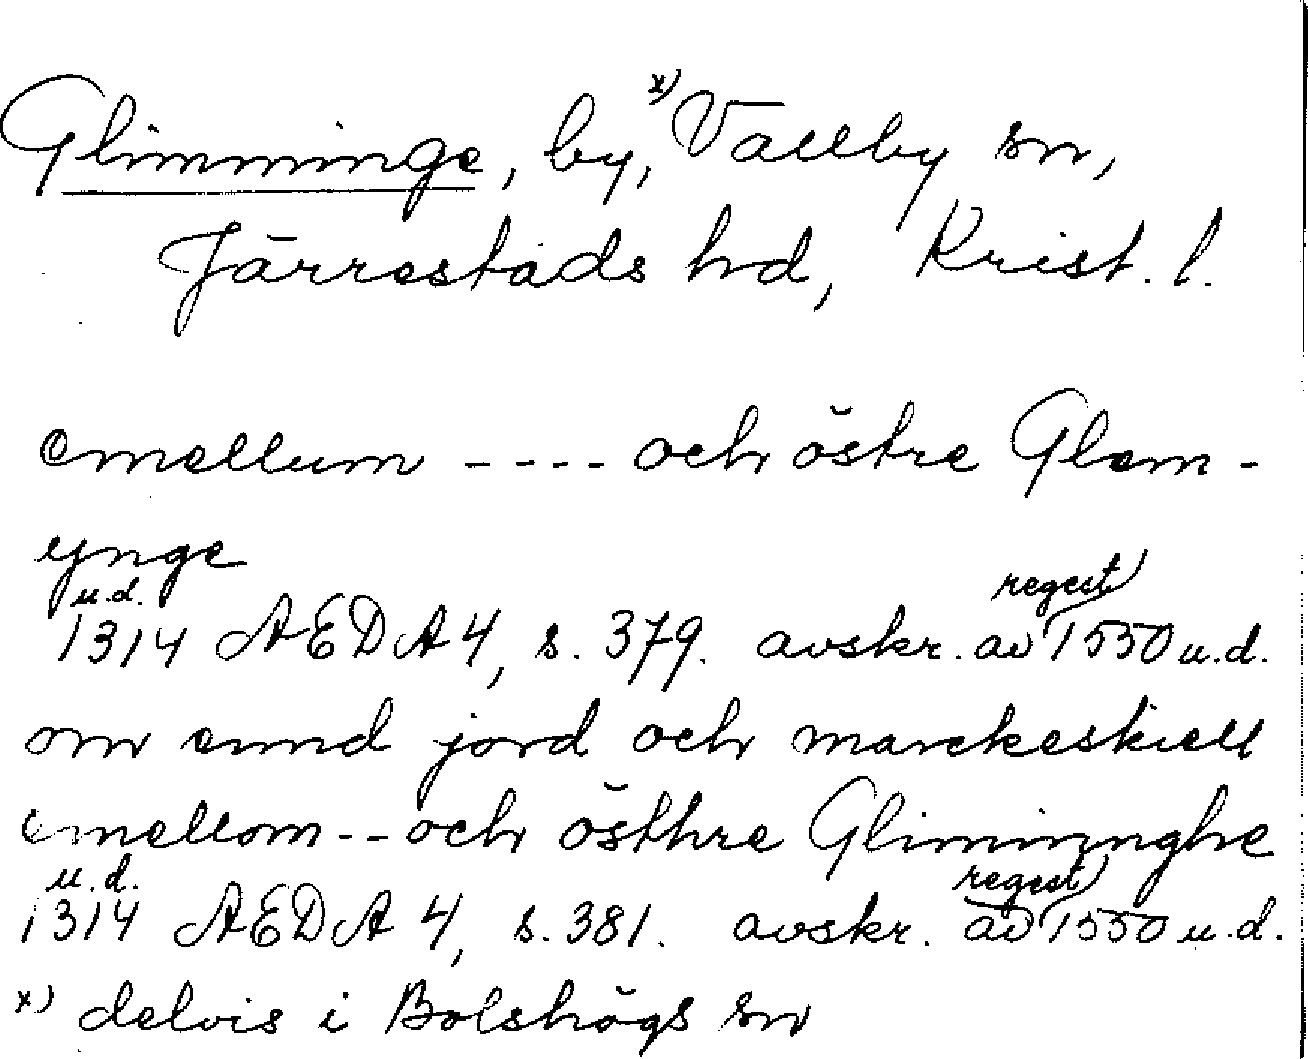 Glimminge, by, x) Vallby sn,
Järrestads hd, Krist. l.
emellum ---- och östre Glem-
ynge
u.d. regest
1314 AEDA 4, s. 379. avskr. av 1550 u.d.
om eund jord och marckeskiell
emellom -- och östhre Glimminghe
u.d. regest
1314 AEDA 4, s. 381. avskr. av 1550 u.d.
x) delvis i Bolshögs sn